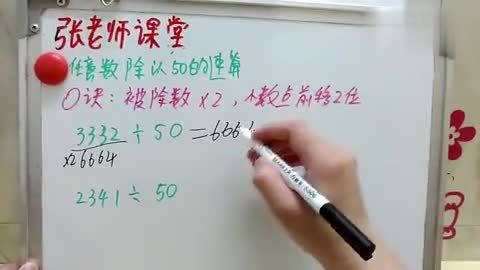 张老师课堂
任意数除以50的速算
口诀：被除数×2，小数点前移2位
3332÷50=666
×2 6664
2341÷50